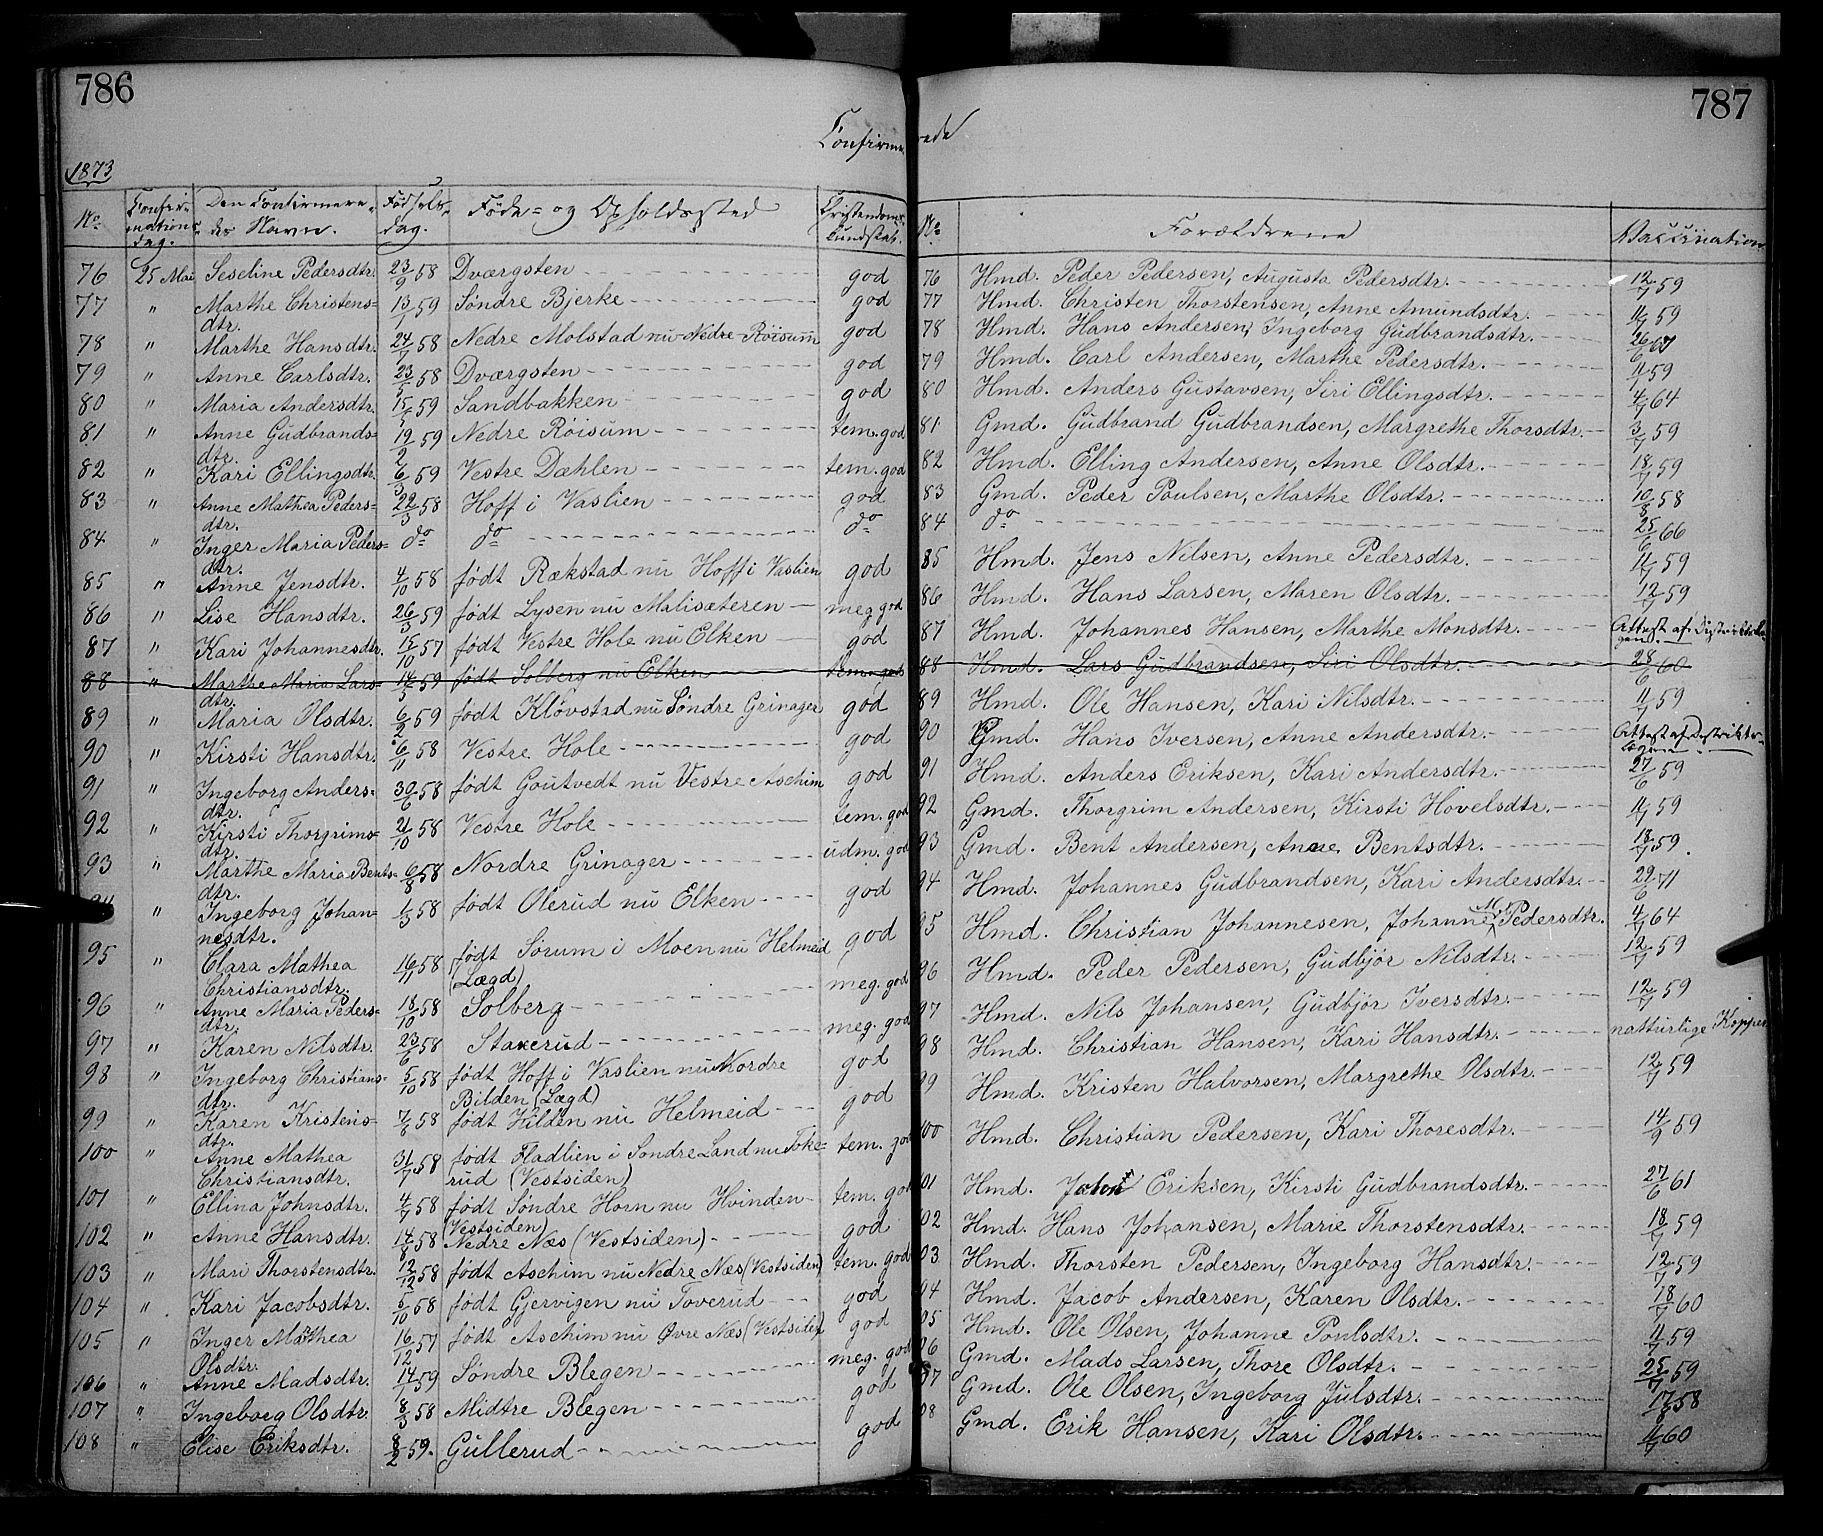 786
787
Confirmerede
1873
No
Confirmationsdag.
Den Confirmeredes Navn.
Fødselsdag.
Føde- og Opholdssted
Kristendomskundskab.
No
Forældrene
Vaccination
76 25 Mai Seseline Pedersdtr. 23/9 58 Dværgsten god
77 " Marthe Christensdtr. 13/1 59 Søndre Bjerke god
78 " Marthe Hansdtr. 24/7 58 Nedre Molstad nu Nedre Röisum god
79 " Anne Carlsdtr. 23/5 58 Dværgsten god
80 " Maria Andersdtr. 15/5 59 Sandbakken god
81 " Anne Gudbrandsdtr. 19/2 59 Nedre Röisum tem. god
82 " Kari Ellingsdtr. 6/3 59 Vestre Dæhlen tem. god
83 " Anne Mathea Pedersdtr. 22/3 58 Hoff i Vaslien god
84 " Inger Maria Pedersdtr. do do do
85 " Anne Jensdtr. 4/10 58 født Rækstad nu Hoff i Vaslien god
86 " Lise Hansdtr. 26/3 59 født Lysen nu Malisæteren meg. god
87 " Kari Johannesdtr. 15/10 57 født Vestre Hole nu Elken god
88 " Marthe Maria Larsdtr. 14/5 59 født Solberg nu Elken tem. god
89 " Maria Olsdtr. 6/2 59 født Kløvstad nu Søndre Grinager god
90 " Kirsti Hansdtr. 6/11 58 Vestre Hole god
91 " Ingeborg Andersdtr. 30/6 58 født Goutvedt nu Vestre Aschim god
92 " Kirsti Thorgrimsdtr. 21/10 58 Vestre Hole tem. god
93 " Marthe Maria Bentsdtr. 6/8 58 Nordre Grinager udm. god
94 " Ingeborg Johannesdtr. 1/5 58 født Olerud nu Elken god
95 " Clara Mathea Christiansdtr. 16/11 58 født Sørum i Moen nu Helmeid (Lægd) god
96 " Anne Maria Pedersdtr. 18/10 58 Solberg meg. god
97 " Karen Nilsdtr. 23/6 58 Staxerud meg. god
98 " Ingeborg Christiansdtr. 5/10 58 født Hoff i Vaslien nu Nordre Bilden (Lægd) god
99 " Karen Kristensdtr. 7/6 58 født Hilden nu Helmeid god
100 " Anne Mathea Christiansdtr. 31/7 58 født Fladlien i Søndre Land nu Tokerud (Vestsiden) tem. god
101 " Ellina Johnsdtr. 4/7 58 født Søndre Horn nu Hvinden (Vestsiden) tem. god
102 " Anne Hansdtr. 14/8 58 Nedre Næs (Vestsiden) god
103 " Mari Thorstensdtr. 12/12 58 født Aschim nu Nedre Næs (Vestsiden) tem. god
104 " Kari Jacobsdtr. 5/10 58 født Gjervigen nu Toverud god
105 " Inger Mathea Olsdtr. 16/12 57 født Aschim nu Øvre Næs (Vestsiden) god
106 " Anne Madsdtr. 14/1 59 Søndre Blegen meg. god
107 " Ingeborg Olsdtr. 8/3 58 Midtre Blegen god
108 " Elise Eriksdtr. 8/2 59. Gullerud god
76 Hmd. Peder Pedersen, Augusta Pedersdtr. 12/7 59
77 Hmd. Christen Thorstensen, Anne Amundsdtr. 11/7 59
78 Hmd. Hans Andersen, Ingeborg Gudbrandsdtr. 26/6 67
79 Hmd. Carl Andersen, Marthe Pedersdtr. 11/7 59
80 Hmd. Anders Gustavsen, Siri Ellingsdtr. 4/7 64
81 Gmd. Gudbrand Gudbrandsen, Margrethe Thorsdtr. 3/7 59
82 Hmd. Elling Andersen, Anne Olsdtr. 18/7 59
83 Gmd. Peder Poulsen, Marthe Olsdtr. 10/8 58
84 do 25/6 66
85 Hmd. Jens Nilsen, Anne Pedersdtr. 11/7 59
86 Hmd. Hans Larsen, Maren Olsdtr. 12/7 59
87 Hmd. Johannes Hansen, Marthe Monsdtr. Attest af Distriktslægen
88 Hmd. Lars Gudbrandsen, Siri Olsdtr. 28/6 60
89 Hmd. Ole Hansen, Kari Nilsdtr. 11/7 59
90 Gmd. Hans Iversen, Anne Andersdtr. Attest af Distriktslægen
91 Hmd. Anders Eriksen, Kari Andersdtr. 27/6 59
92 Gmd. Thorgrim Andersen, Kirsti Hovelsdtr. 11/7 59
93 Gmd. Bent Andersen, Anne Bentsdtr. 18/7 59.
94 Hmd. Johannes Gudbrandsen, Kari Andersdtr. 29/6 71
95 Hmd. Christian Johannesen, Johanne M. Pedersdtr. 4/7 64
96 Hmd. Peder Pedersen, Gudbjør Nilsdtr. 12/7 59
97 Hmd. Nils Johansen, Gudbjør Iversdtr. 12/7 59
98 Hmd. Christian Hansen, Kari Hansdtr. natturlige Kopper
99 Hmd. Kristen Halvorsen, Margrethe Olsdtr. 12/7 59
100 Hmd. Christian Pedersen, Kari Thoresdtr. 14/9 59
101 Hmd. John Eriksen, Kirsti Gudbrandsdtr. 27/6 61
102 Hmd. Hans Johansen, Marie Thorstensdtr. 18/7 59
103 Hmd. Thorsten Pedersen, Ingeborg Hansdtr. 12/7 59
104 Hmd. Jacob Andersen, Karen Olsdtr. 18/7 60
105 Hmd. Ole Olsen, Johanne Poulsdtr. 11/7 59
106 Gmd. Mads Larsen, Thore Olsdtr. 25/7 59
107 Gmd. Ole Olsen, Ingeborg Julsdtr. 17/8 58
108 Gmd. Erik Hansen, Kari Olsdtr. 11/7 60